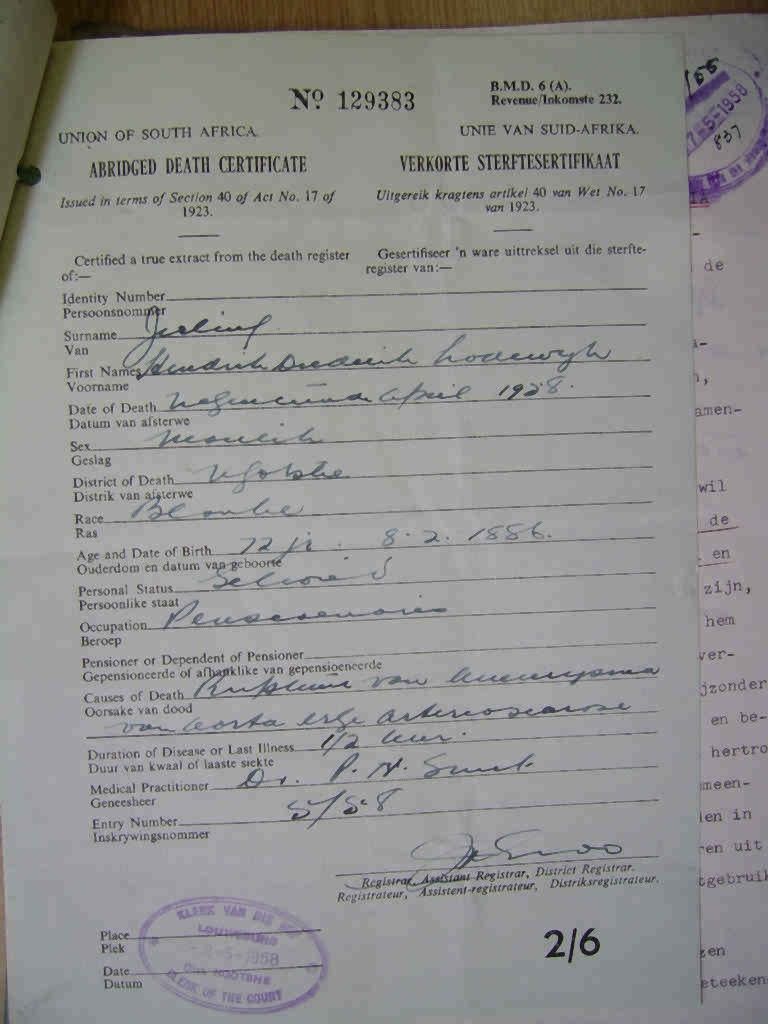 Nº 129383
B.M.D. 6 (A).
Revenue/Inkomste 232.
UNION OF SOUTH AFRICA.
ABRIDGED DEATH CERTIFICATE
Issued in terms of Section 40 of Act No. 17 of
1923.
Certified a true extract from the death register
of:—
UNIE VAN SUID-AFRIKA.
VERKORTE STERFTESERTIFIKAAT
Uitgereik kragtens artikel 40 van Wet No. 17
van 1923.
Gesertifiseer 'n ware uittreksel uit die sterfte-
register van:—
Identity Number
Persoonsnommer
Surname
Van
First Names Hendrik Diederik Lodewyk
Voorname
Date of Death April 1958.
Datum van afsterwe
Sex Manlik
Geslag
District of Death
Distrik van afsterwe
Race Blanke
Ras
Age and Date of Birth 72 jr. 8.2.1886.
Ouderdom en datum van geboorte
Personal Status
Persoonlike staat
Occupation Pensioenaris
Beroep
Pensioner or Dependent of Pensioner
Gepensioneerde of afhanklike van gepensioeneerde
Causes of Death Ruptuur van Aneurysma
Oorsake van dood
van aorta erge arteriosclerose
Duration of Disease or Last Illness 1/2 uur.
Duur van kwaal of laaste siekte
Medical Practitioner Dr. P. N. Smit
Geneesheer
Entry Number 5/58
Inskrywingsnommer
Registrar, Assistant Registrar, District Registrar.
Registrateur, Assistent-registrateur, Distriksregistrateur.
Place
Plek
Date
Datum
KLERK VAN DIE HOF
2-5-1958
CLERK OF THE COURT
2/6
7-5-1958
837
de
amen-
wil
de
en
zijn,
hem
ver-
jzonder
en be-
hertro
meen-
len in
ren uit
tgebruik
zen
eteeken-